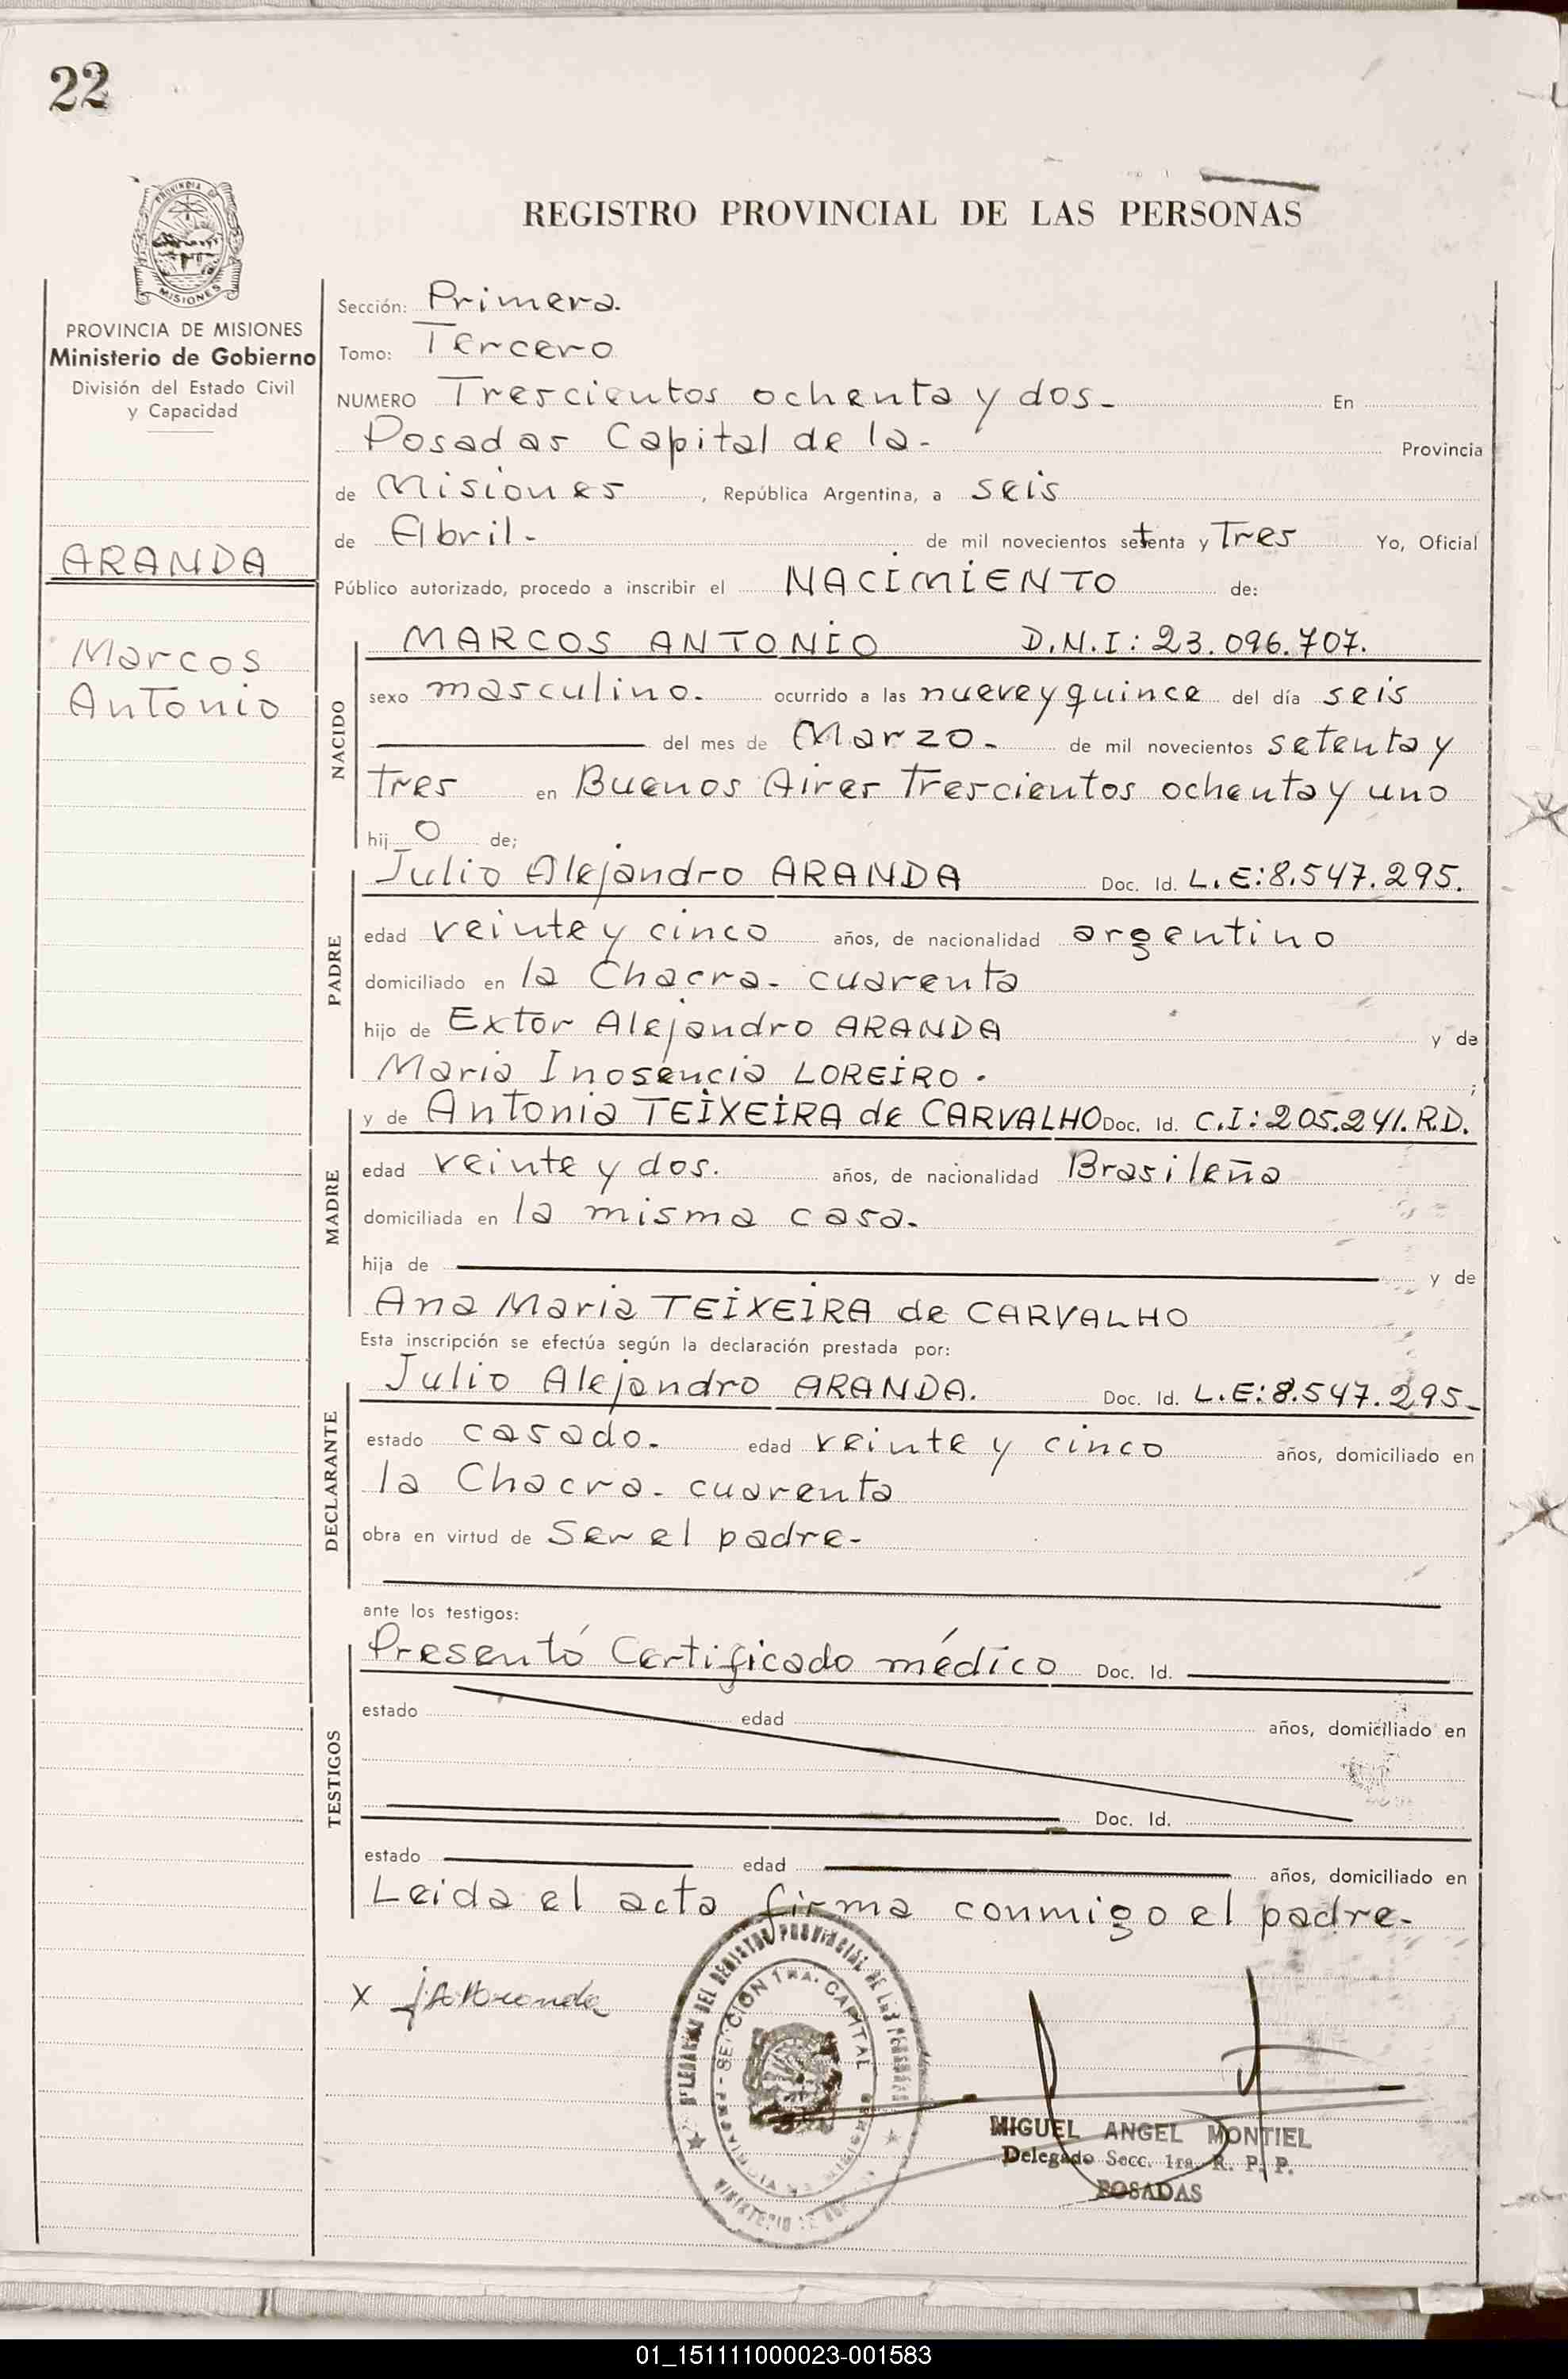 22
REGISTRO PROVINCIAL DE LAS PERSONAS
PROVINCIA DE MISIONES
Ministerio de Gobierno
División del Estado Civil
y Capacidad
ARANDA
Marcos
Antonio
Sección: Primera.
Tomo: Tercero
NUMERO Trescientos ochenta y dos- En
Posadas Capital de la- Provincia
de Misiones, República Argentina, a seis
de Abril- de mil novecientos setenta y Tres Yo, Oficial
Público autorizado, procedo a inscribir el NACIMIENTO de:
NACIDO
MARCOS ANTONIO D.N.I: 23.096.707.
sexo masculino. ocurrido a las nueve y quince del día seis
del mes de Marzo- de mil novecientos setenta y
tres en Buenos Aires Trescientos ochenta y uno
hijo de;
PADRE
Julio Alejandro ARANDA Doc. Id. L.E:8.547.295.
edad veinte y cinco años, de nacionalidad argentino
domiciliado en la Chacra- cuarenta
hijo de Extor Alejandro ARANDA y de
Maria Inosencia LOREIRO. ;
MADRE
y de Antonia TEIXEIRA de CARVALHO Doc. Id. C.I:205.241.R.D.
edad veinte y dos. años, de nacionalidad Brasileña
domiciliada en la misma casa.
hija de y de
Ana Maria TEIXEIRA de CARVALHO
Esta inscripción se efectúa según la declaración prestada por:
DECLARANTE
Julio Alejandro ARANDA. Doc. Id. L.E:8.547.295-
estado casado. edad veinte y cinco años, domiciliado en
la Chacra- cuarenta
obra en virtud de Ser el padre-
ante los testigos:
TESTIGOS
Presentó Certificado médico Doc. Id.
estado edad años, domiciliado en
Doc. Id.
estado edad años, domiciliado en
Leida el acta firma conmigo el padre-
x
DEL REGISTRO PROVINCIAL DE LAS PERSONAS
SECCION 1RA. CAPITAL
MIGUEL ANGEL MONTIEL
Delegado Secc. 1ra. R. P. P.
POSADAS
01_151111000023-001583